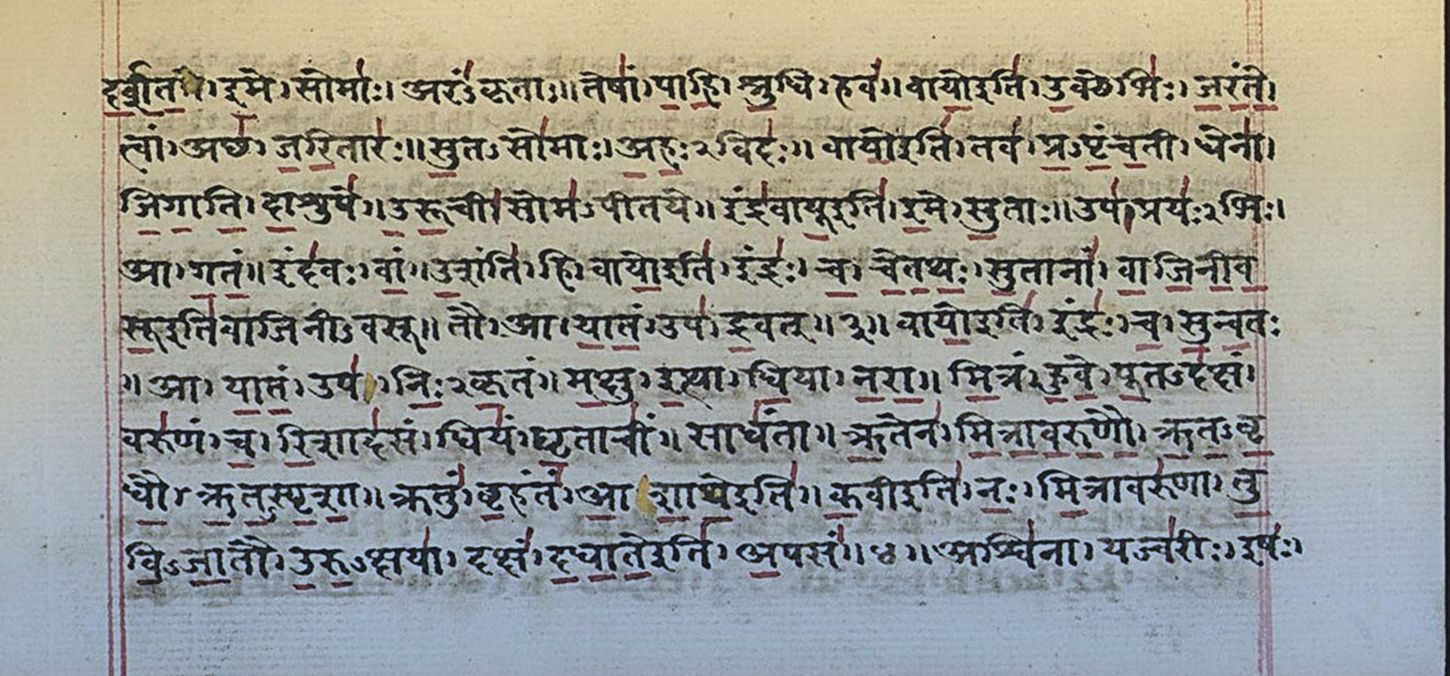 दर्शतं॑। इ॒मे। सोमाः॑। अरं॑ऽकृताः॥ तेषां॑। पा॒हि॒। श्रु॒धि। हवं॑॥ वायो॒इति॑। उ॒क्थेभिः॑। ज॒रं॒ते॒।
त्वां। अच्छ॑। ज॒रि॒तारः॑॥ सु॒तऽसो॑माः। अ॒हः॒२विदः॑॥ वायो॒इति॑। तव॑। प्र॒ऽपृं॒च॒ती। धेना॑।
जि॒गा॒ति॒। दा॒शुषे॑॥ उ॒रू॒ची। सोम॑ऽपीतये॥ इंद्र॑वायू॒इति॑। इ॒मे। सु॒ताः॥ उप॑। प्रयः॑२भिः।
आ। ग॒तं॒॥ इंद॑वः। वां॒॥ उ॒शंति॑। हि। वायो॒इति॑। इंद्रः॑। च॒। चे॒त॒थः॒। सु॒तानां॑। वा॒जि॒नी॒व॒
सू॒इति॑वाजिनीऽवसू॥ तौ। आ। या॒तं॒। उप॑। द्र॒वत्॥ ३॥ वायो॒इति॑। इंद्रः॑। च॒। सु॒न्व॒तः
। आ। या॒तं॒। उप॑। निः॒२कृ॒तं॥ म॒क्षु। इ॒त्था। धि॒या। न॒रा॒॥ मि॒त्रं। हु॒वे॒। पू॒तऽद॑क्षं।
वरु॑णं। च॒। रि॒शाद॑सं। धियं॑। घृ॒ताचीं॑॥ साधं॑ता॥ ऋ॒तेन॑। मि॒त्रा॒व॒रु॒णौ॒। ऋ॒त॒ऽवृ॒
धौ॒। ऋ॒त॒स्पृ॒शा॒॥ ऋतुं॑। बृ॒हंतं॑। आ॒शा॒थे॒इति॑॥ क॒वीइति॑। नः॒। मि॒त्रावरु॑णा। तु॒
वि॒ऽजा॒तौ। उ॒रु॒ऽक्षया॑। दक्षं॑। द॒धा॒ते॒इति॑। अ॒पसं॑॥ ४॥ अश्वि॑ना। यज्व॑रीः। इषः॑।